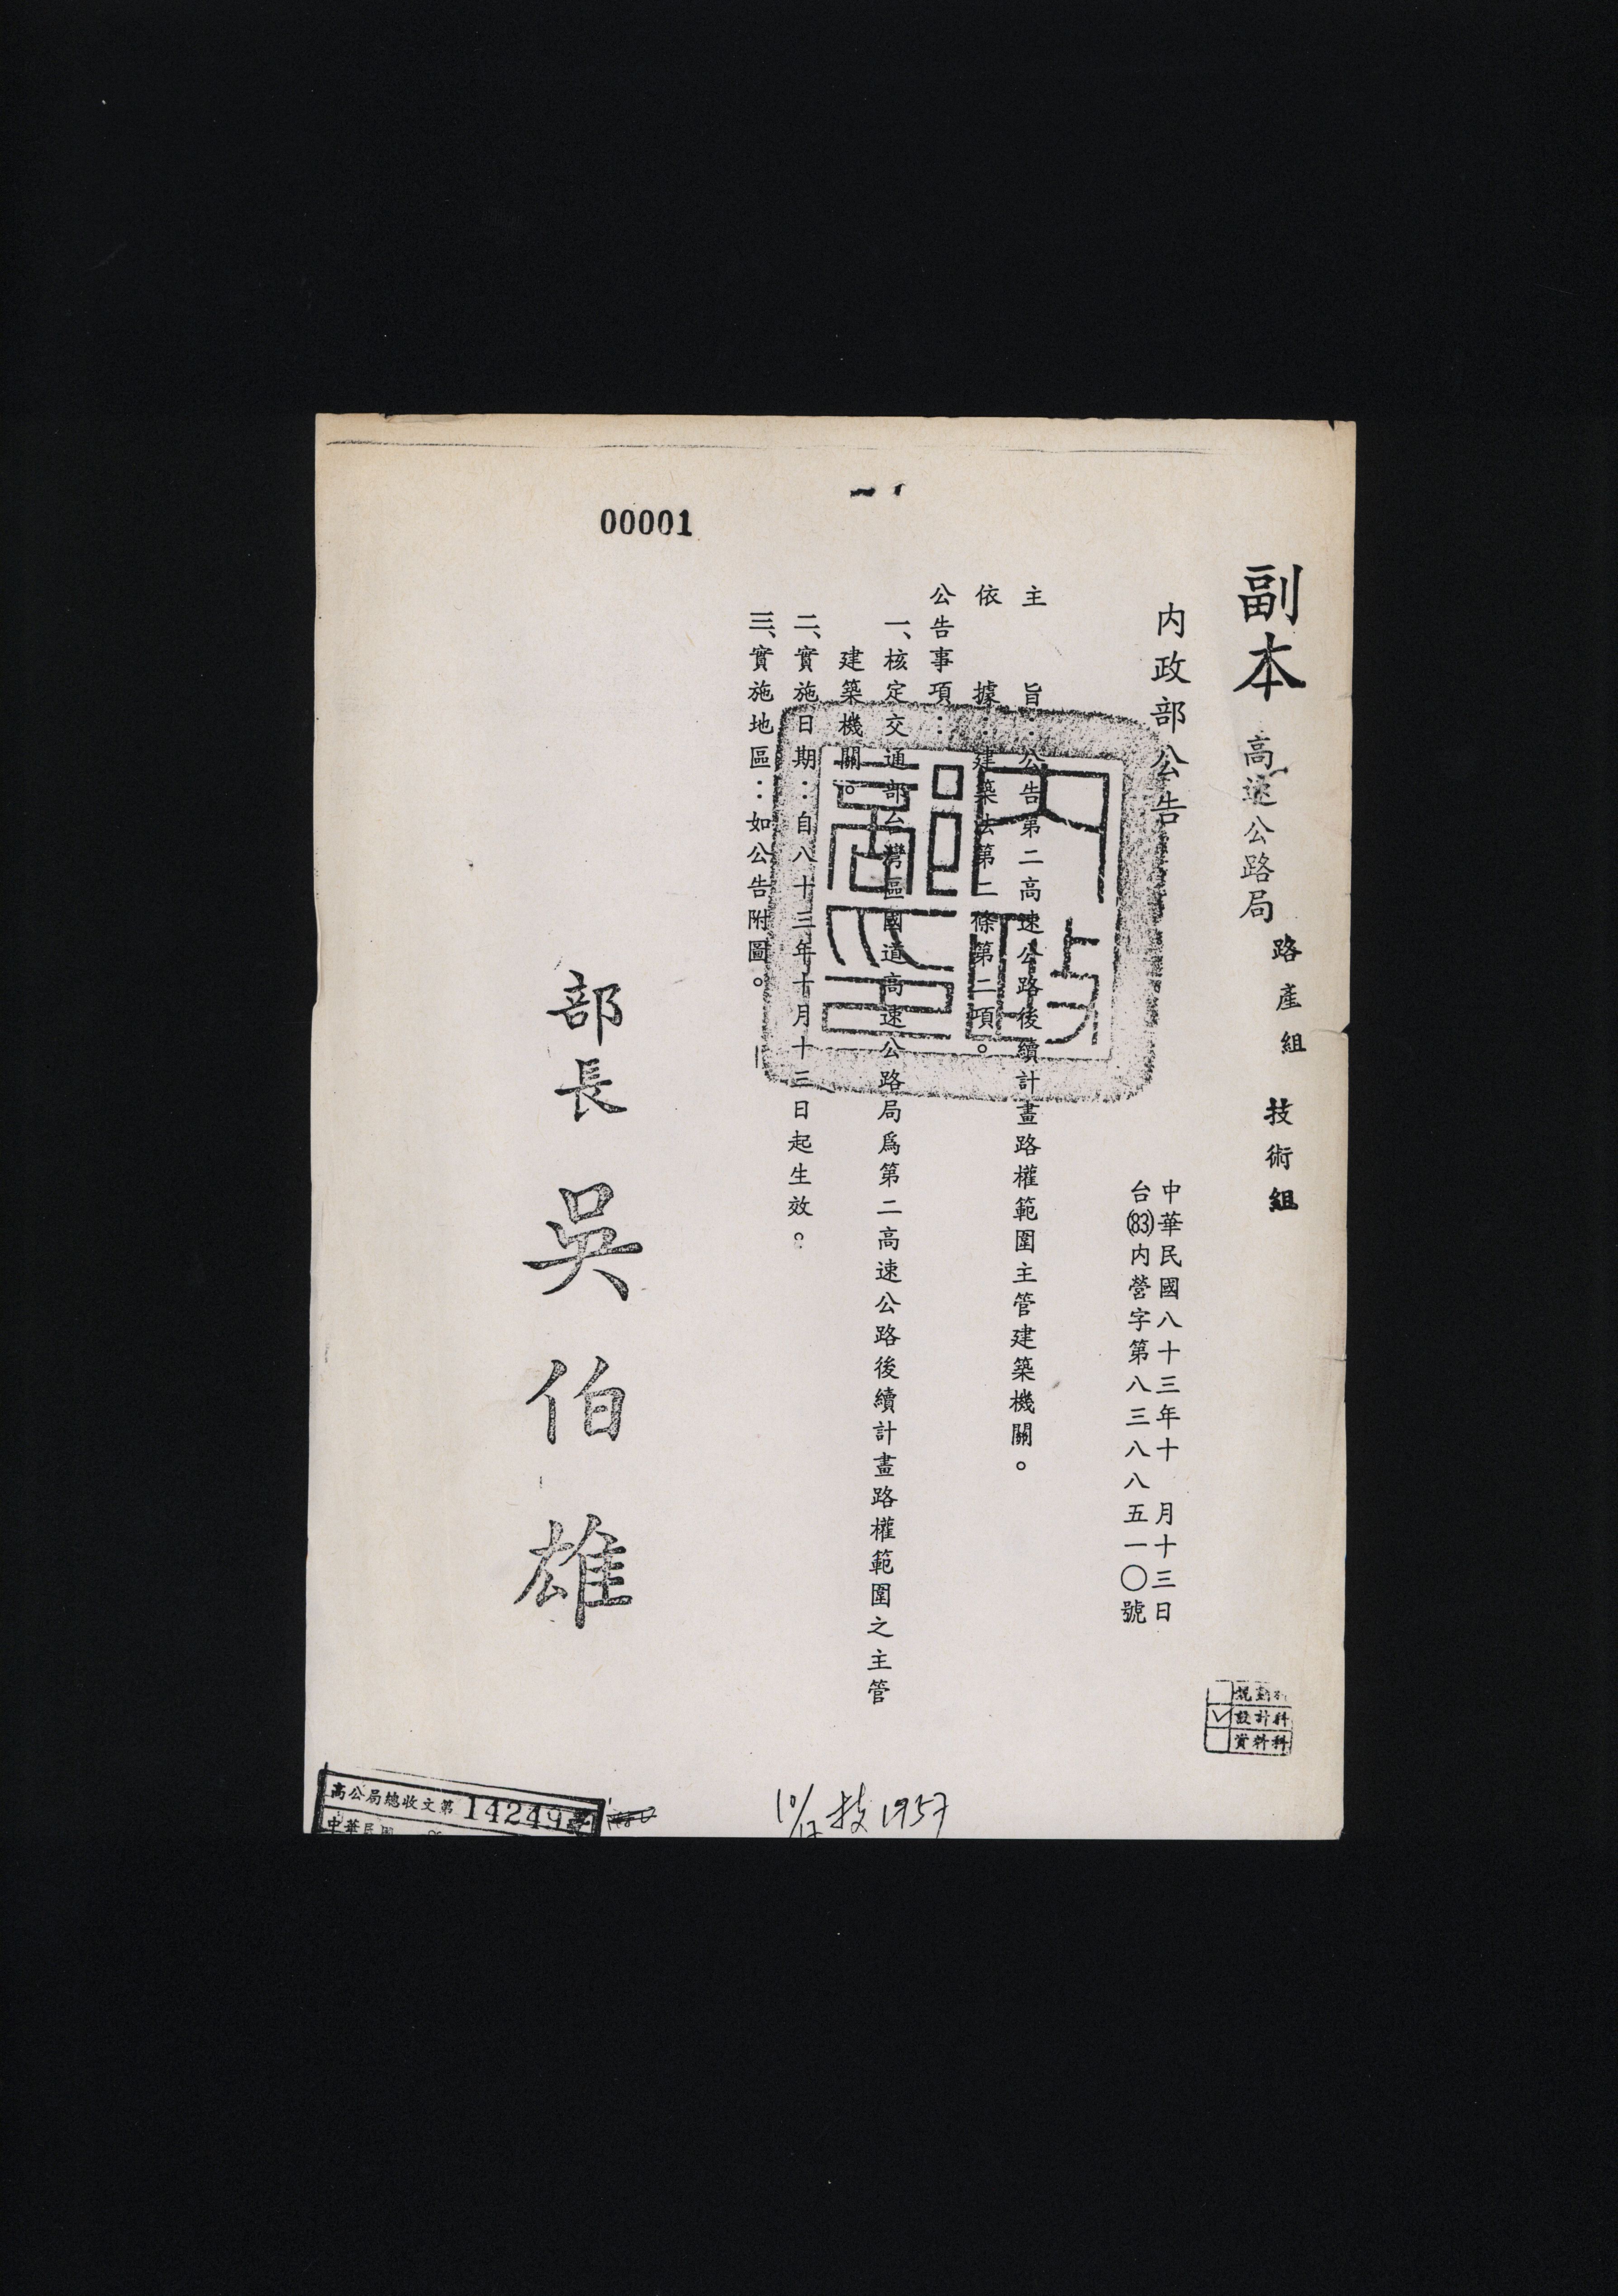 00001
副本 高速公路局 路產組 技術組
內政部公告
中華民國八十三年十月十三日
台(83)內營字第八三八八五一〇號
主旨：公告第二高速公路後續計畫路權範圍主管建築機關。
依據：建築法第二條第二項。
公告事項：
一、核定交通部台灣區國道高速公路局爲第二高速公路後續計畫路權範圍之主管
建築機關。
二、實施日期：自八十三年十月十三日起生效。
三、實施地區：如公告附圖。
部長 吳伯雄
內政部印
規劃科
設計科
資料科
高公局總收文第14249
中華民國
技1957